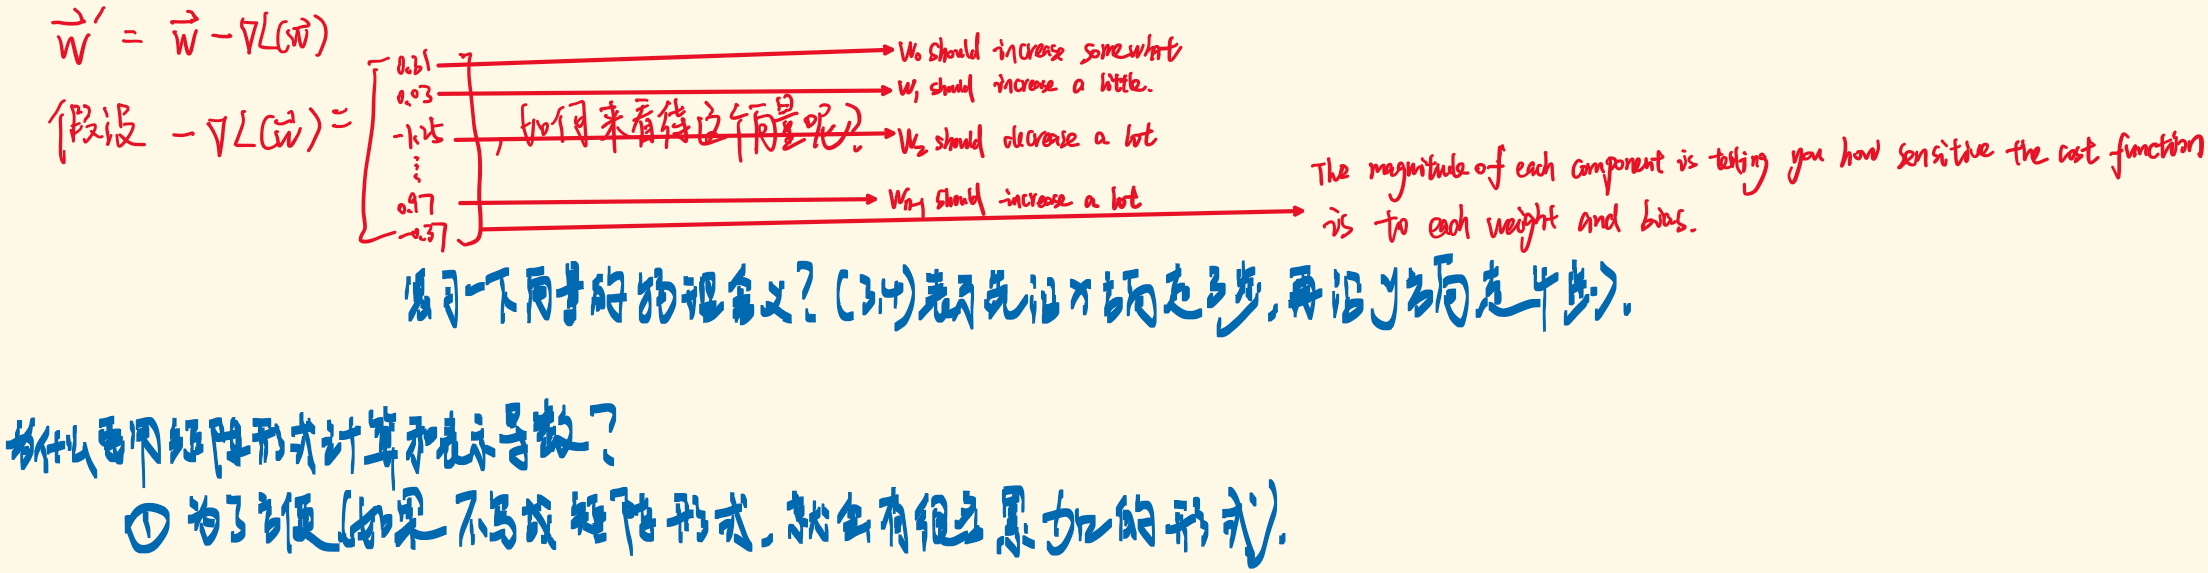 w⃗' = w⃗ − ∇L(w⃗)
假设 − ∇L(w⃗) =
0.31
0.03
-1.25
⋮
0.47
-0.37
, (如何来看待这个向量呢?)
W₀ should increase somewhat
W₁ should increase a little.
W₂ should decrease a lot
Wₙ₋₁ should increase a lot
The magnitude of each component is telling you how sensitive the cost function
is to each weight and bias.
复习一下向量的物理含义? (3,4)表示先沿x方向走3步,再沿y方向走4步).
为什么要用矩阵形式计算和表示导数?
① 为了方便(如果不写成矩阵形式,就会有很多累加的形式).